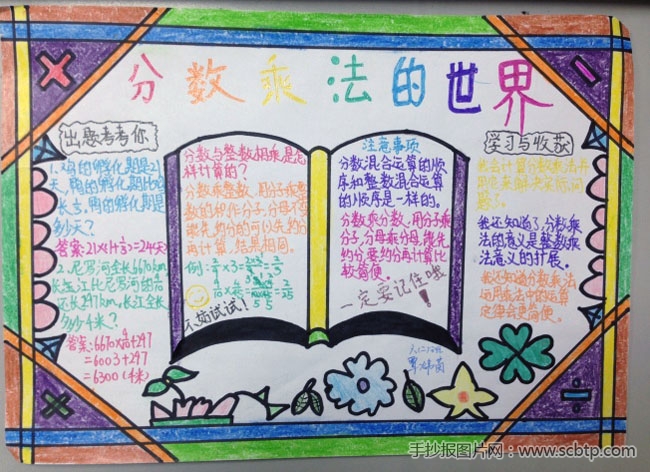 分数乘法的世界
出题考考你
1.鸡的孵化期是21
天,鸭的孵化期比
长⅓.鸭的孵化期是
多少天?
2.尼罗河全长6670km,
长江比尼罗河的
还长297km,长江全长
多少千米?
+297
=6003+297
=6300(千米)
分数与整数相乘是怎
样计算的?
分数乘整数,用分子乘整
数的积作分子,分母不变
能先约分的可以先约分
再计算,结果相同。
不妨试试!
注意事项
分数混合运算的顺
序和整数混合运算
的顺序是一样的。
分数乘分数,用分子乘
分子,分母乘分母,能先
约分要约分再计算比
较简便。
一定要记住哦!
学习与收获
我会计算分数乘法并
用它来解决实际问
题了。
我还知道了分数乘
法的意义是整数乘
法意义的扩展。
我还知道分数乘法
运用乘法中的运算
定律会更简便。
手抄报图片网:www.scbtp.com